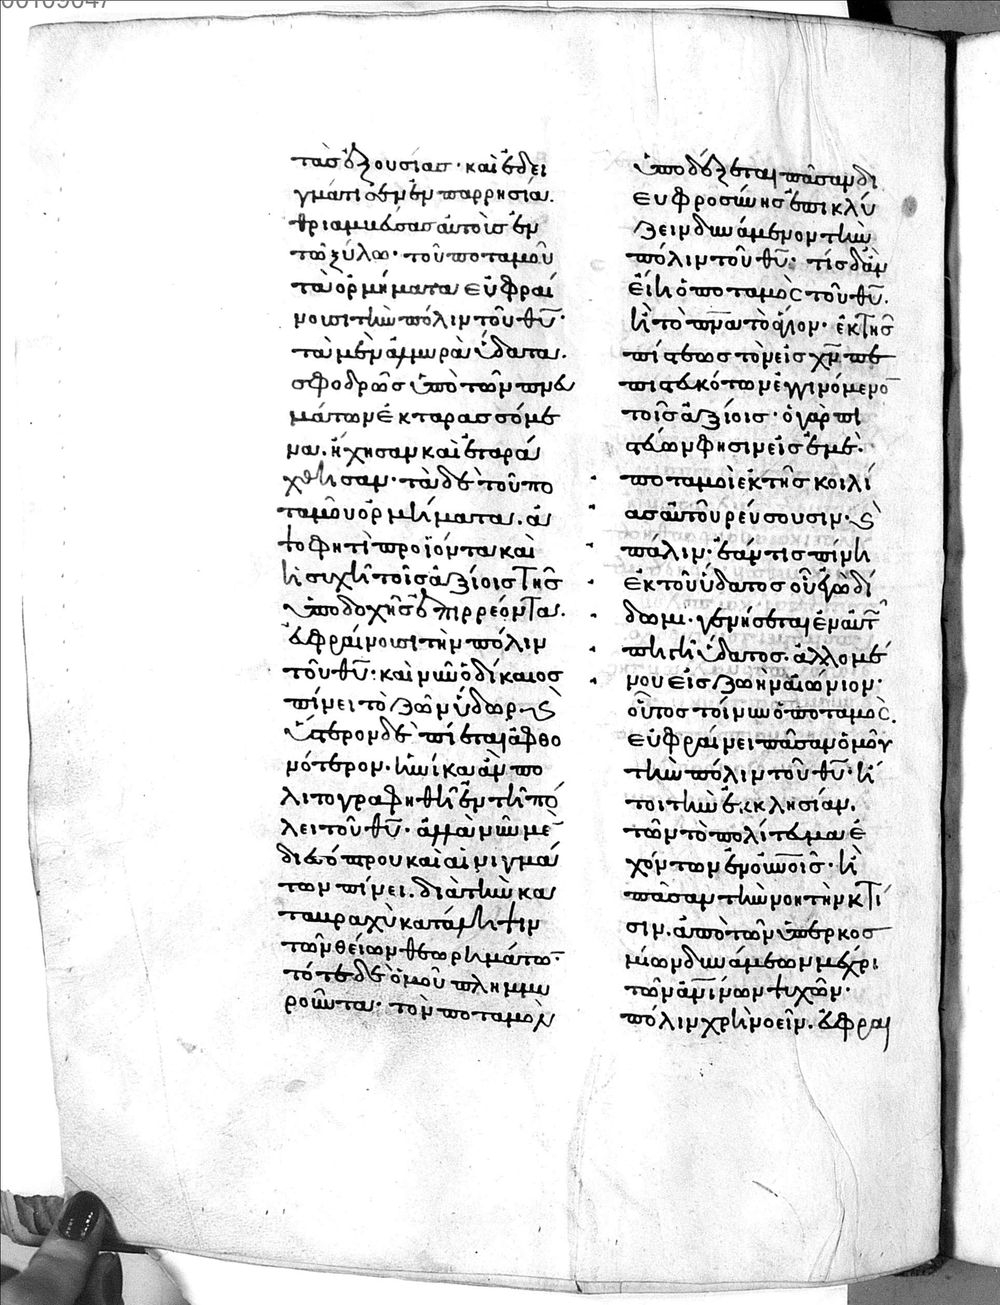 τὰς ἐξουσίας· καὶ ἐδει
γμάτισεν ἐν παρρησία.
θριαμβεύσας αὐτοὺς ἐν
τῶ ξύλω· τοῦ ποταμοῦ
τὰ ὁρμήματα εὐφραί
νουσι τὴν πόλιν τοῦ θῦ·
τὰ μὲν ἁλμυρὰ ὕδατα.
σφοδρῶς ὑπὸ τῶν πνευ
μάτων ἐκταρασσόμε
να. ἤχησαν καὶ ἐταρά
χθησαν· τὰ δὲ τοῦ πο
ταμοῦ ὁρμήματα. ἀ
ψοφητὶ προϊόντα καὶ
ἡσυχῆ τοῖς ἀξίοις τῆς
ὑποδοχῆς ἐπιρρέοντα.
εὐφραίνουσι τὴν πόλιν
τοῦ θῦ· καὶ νῦν ὁ δίκαιος
πίνει τὸ ζῶν ὕδωρ. ϗ
ὕστερον δὲ πίεται ἀφθο
νότερον. ἡνίκα ἂν πο
λιτογραφηθῆ ἐν τῆ πό
λει τοῦ θῦ· ἀλλὰ νῦν μὲ
δι' ἐσόπτρου καὶ αἰνιγμά
των πίνει. διὰ τὴν κα
τα βραχὺ κατάληψιν
τῶν θείων θεωρημάτω·
τότε δὲ ὁμοῦ πλημμυ
ροῦντα· τὸν ποταμὸν
ὑποδέξεται πᾶσαν δι
εὐφροσύνης ἐπικλύ
ζειν δυνάμενον τὴν
πόλιν τοῦ θῦ· τίς δ' ἂν
εἴη ὁ ποταμὸς τοῦ θῦ.
ἢ τὸ πνα τὸ ἅγιον· ἐκ τῆς
πίστεως τὸν εἰς χν πε
πιστευκότων ἐγγινόμενο
τοῖς ἀξίοις· ὁ γὰρ πι
στεύων φησιν εἰς ἐμὲ·
ποταμοὶ ἐκ τῆς κοιλί
ας αὐτοῦ ρεύσουσιν· ϗ
πάλιν· ἐάν τις πίνη
ἐκ τοῦ ὕδατος οὗ ἐγὼ δί
δωμι· γενήσεται ἐν αὐτ
πηγὴ ὕδατος. ἁλλομέ
νου εἰς ζωὴν αἰώνιον·
οὗτος τοίνυν ὁ ποταμὸς.
εὐφραίνει πᾶσαν ὁμοῦ
τὴν πόλιν τοῦ θῦ· ἤ
τοι τὴν ἐκκλησίαν.
τῶν τὸ πολίτευμα ἐ
χόντων ἐν οὐνοῖς· ἢ
πᾶσαν τὴν νοητὴν κτί
σιν. ἀπὸ τῶν ὑπερκοσ
μίων δυνάμεων μέχρι
τῶν ἀνίνων ψυχῶν·
πόλιν χρὴ νοεῖν. εὐφραι